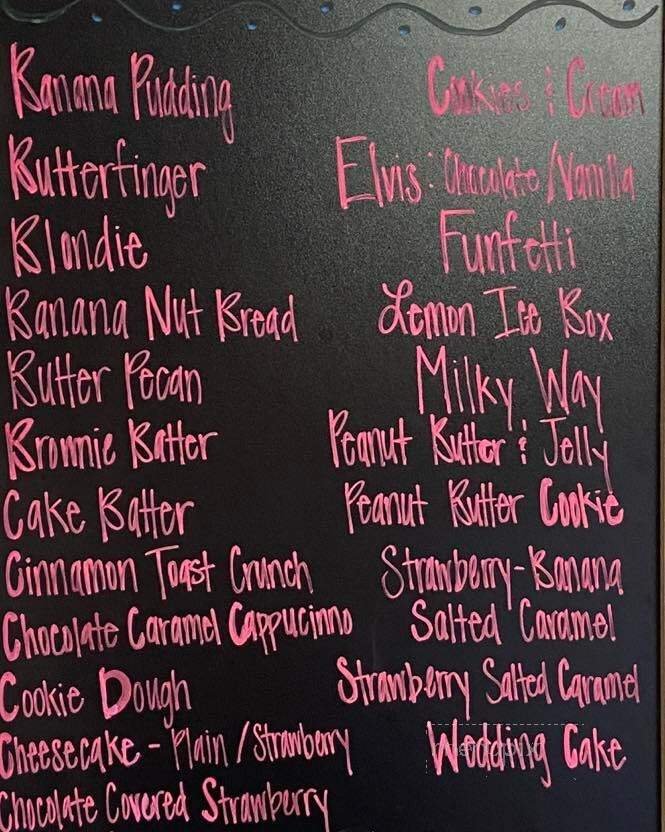 Banana Pudding
Butterfinger
Blondie
Banana Nut Bread
Butter Pecan
Brownie Batter
Cake Batter
Cinnamon Toast Crunch
Chocolate Caramel Cappucinno
Cookie Dough
Cheesecake - Plain / Strawberry
Chocolate Covered Strawberry
Cookies & Cream
Elvis: Chocolate / Vanilla
Funfetti
Lemon Ice Box
Milky Way
Peanut Butter & Jelly
Peanut Butter Cookie
Strawberry-Banana
Salted Caramel
Strawberry Salted Caramel
Wedding Cake